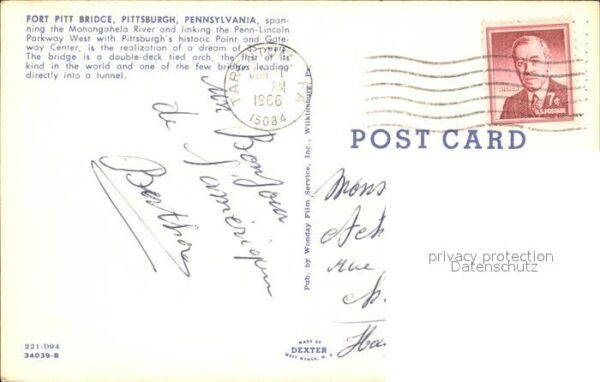 FORT PITT BRIDGE, PITTSBURGH, PENNSYLVANIA, span-
ning the Monongahela River and linking the Penn-Lincoln
Parkway West with Pittsburgh's historic Point and Gate-
way Center, is the realization of a dream of years.
The bridge is a double-deck tied arch, the first of its
kind in the world and one of the few bridges leading
directly into a tunnel.
TARENTUM PA
PM
1966
15084
7¢
U.S. POSTAGE
POST CARD
Bonjour
de l'amérique
Pub. by Wonday Film Service, Inc., Wilkinsburg, Pa.
Mons
rue
privacy protection
Datenschutz
221-D94
34039-B
MADE BY
DEXTER
WEST NYACK, N. Y.